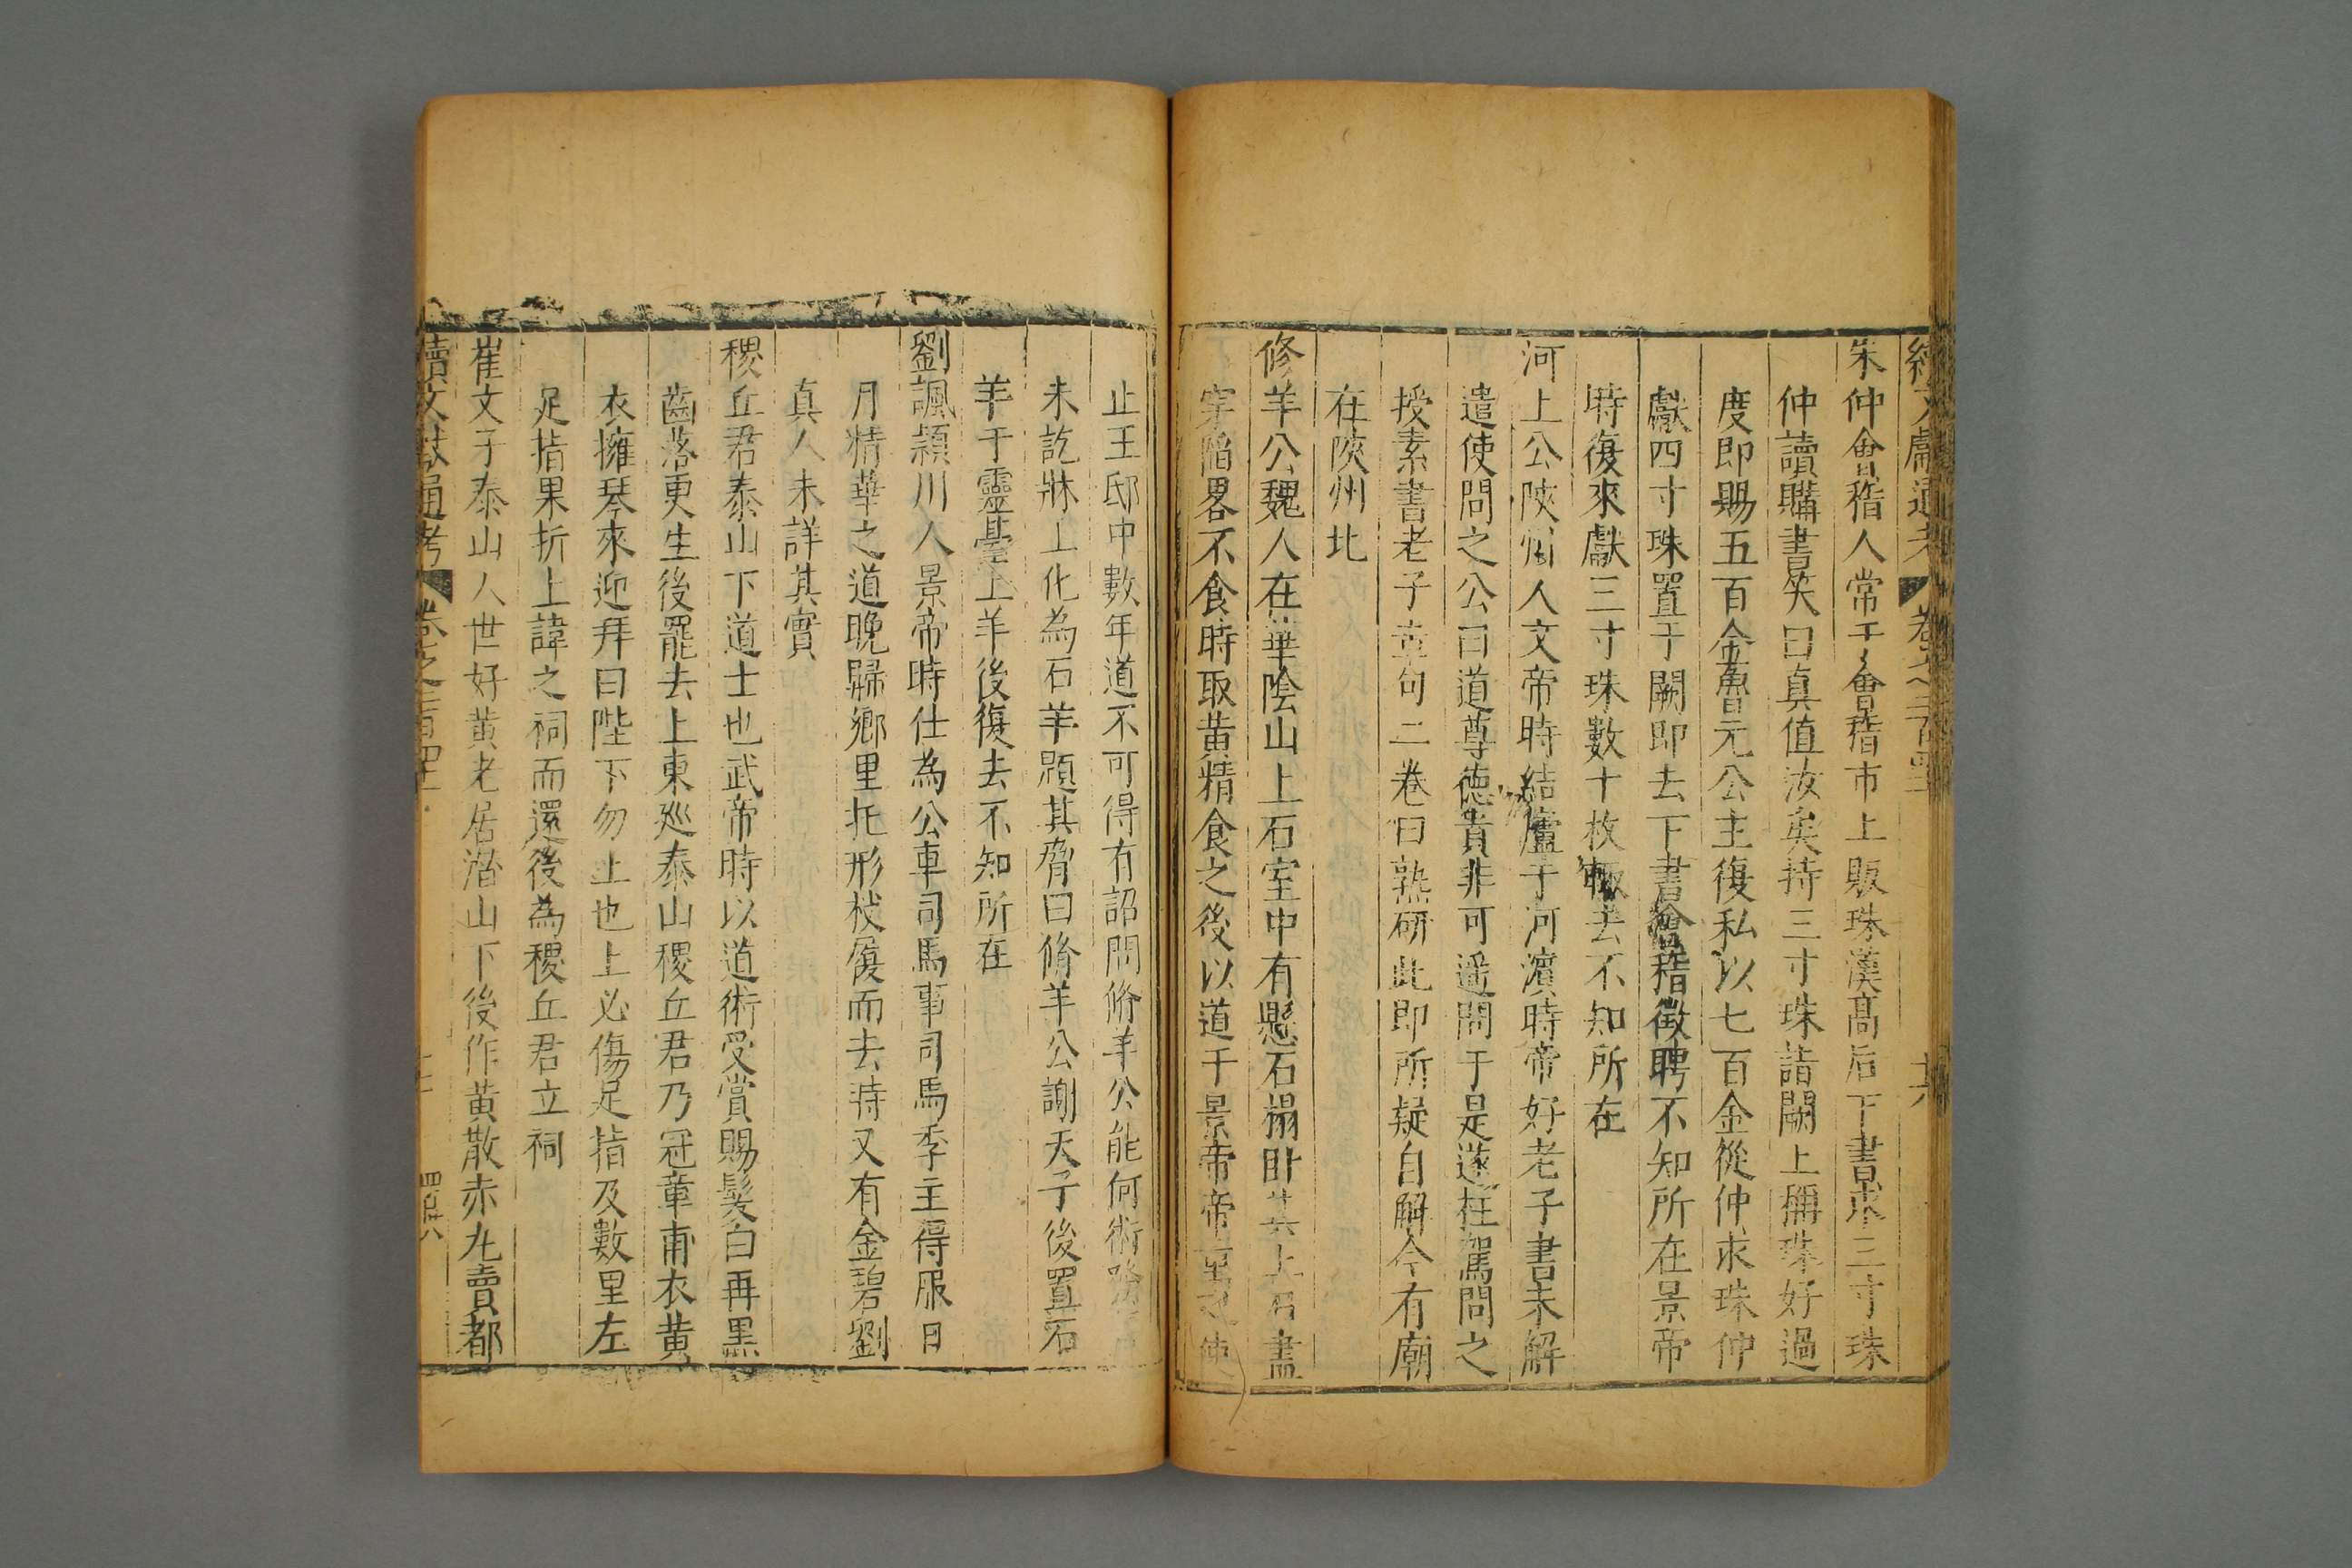 續文獻通考 卷之二百四十 十六
朱仲會稽人常于會稽市上販珠漢髙后下書求三寸珠
仲讀購書笑曰真值汝矣持三寸珠詣闕上稱珠好過
度即賜五百金魯元公主復私以七百金從仲求珠仲
獻四寸珠置于闕即去下書會稽徵聘不知所在景帝
時復來獻三寸珠數十枚輙去不知所在
河上公陝州人文帝時結廬于河濱時帝好老子書未解
遣使問之公曰道尊德貴非可遥問于是遂枉駕問之
授素書老子章句二卷曰熟研此即所疑自解今有廟
在陝州北
修羊公魏人在華陰山上石室中有懸石榻卧其上石盡
穿陷畧不食時取黄精食之後以道干景帝帝
止王邸中數年道不可得有詔問脩羊公能何術
未訖牀上化為石羊題其脅曰脩羊公謝天子後置石
羊于靈臺上羊後復去不知所在
劉諷潁川人景帝時仕為公車司馬事司馬季主得服日
月精華之道晚歸鄉里托形杖履而去時又有金碧劉
真人未詳其實
稷丘君泰山下道士也武帝時以道術受賞賜髮白再黒
齒落更生後罷去上東廵泰山稷丘君乃冠章甫衣黄
衣擁琴來迎拜曰陛下勿上也上必傷足指及數里左
足指果折上諱之祠而還後為稷丘君立祠
崔文子泰山人世好黄老居潜山下後作黄散赤丸賣都
續文獻通考 卷之二百四十